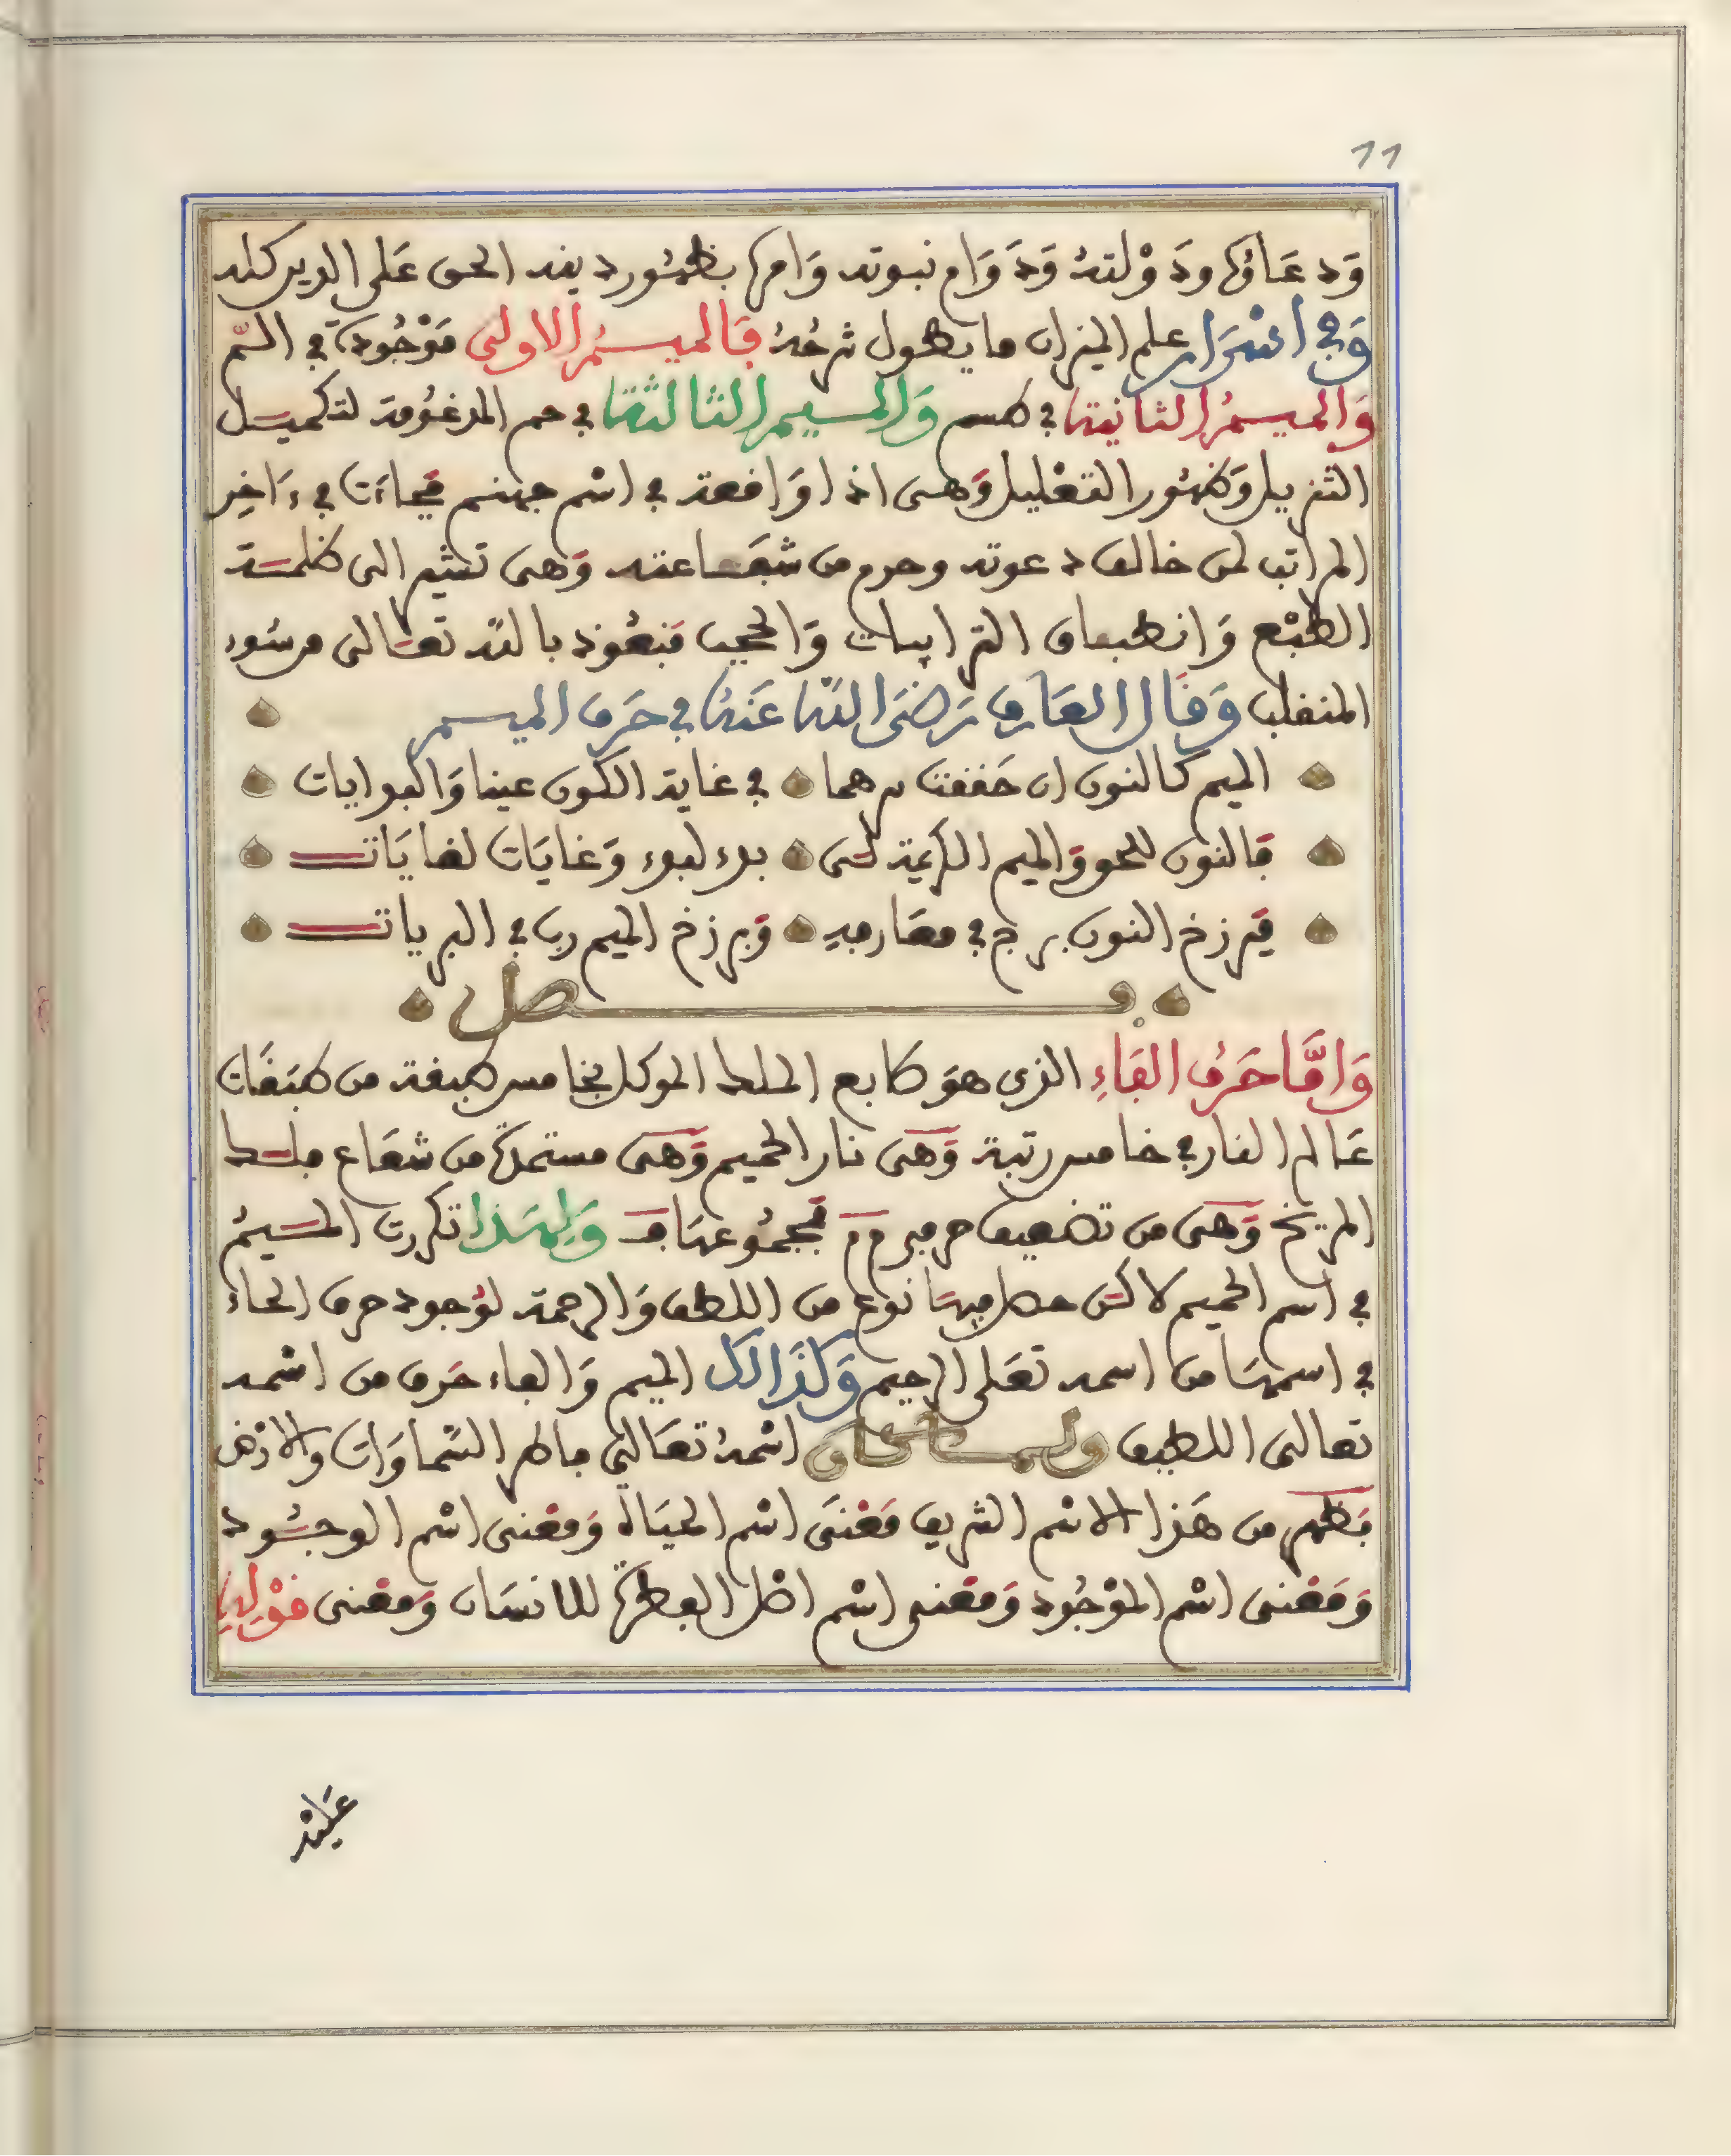 11
وَدعَاؤها ودَوْلتهُ وَدَوَام نبوته وَامرها بظهُور دينه الحق عَلى الدين كله
وَفي اسْرَار علم الميزان ما يطول شرحُهُ فَالميمُ الاولى مَوْجُودة في الم
وَالميمُ الثانية في طسم وَالميم الثالثة في حم المدغومة لتكميل
التنزيل وَظهُور التعْليل وَهى اذا وَاقعة في اسْم جهنم فجاءت في ءَاخر
المراتب لمن خالف دعوته وحرم من شفَاعته وَهى تشير الى ظلمة
الطبْع وَانطباق الترابيات وَالحجب فنعُوذ بالله تعَالى من سُوء
المنقلب وَقَال العَارف رَضيَ اللهُ عَنهُ في حَرف الميم
الميم كالنون ان حَققت سرهما في غاية الكون عينا وَالبدايات
فالنون للحق وَالميم الكريمة لى بدء لبدء وَغايَات لغايَات
فبَرزخ النون برج في معَارجه وَبرزخ الميم رب في البريات
فصل
وَامَّا حَرفُ الفَاءِ الذي هوَ طابع الملك الموكل بخامس طبقة من طبَقَات
عَالم النار في خامس رتبة وَهى نار الحميم وَهى مستمدة من شعَاع فلك
المريخ وَهى من تضعيف حرفي م م فمجمُوعهَا ف وَلِهَذا تكررت الميمُ
في اسم الحميم لاكن حصل فيهَا نوع من اللطف وَالرحمة لوُجود حرف الحاء
في اسمهَا من اسمه تعَلى الرحيم وَكذَالك الميم وَالفاء حَرف من اسْمه
تعالى اللطيف اسْمهُ تعَالى فاطر السَّماوَات وَالارْض
فظهر من هَذا الاسْم الشريف مَعْنَى اسْم الحيَاة وَمعْنى اسْم الوجُود
وَمَعْنى اسْم المَوْجُود وَمَعْنى اسْم اصْل الفطرة للانسَان وَمعْنى قوْلِهِ
عَليْه